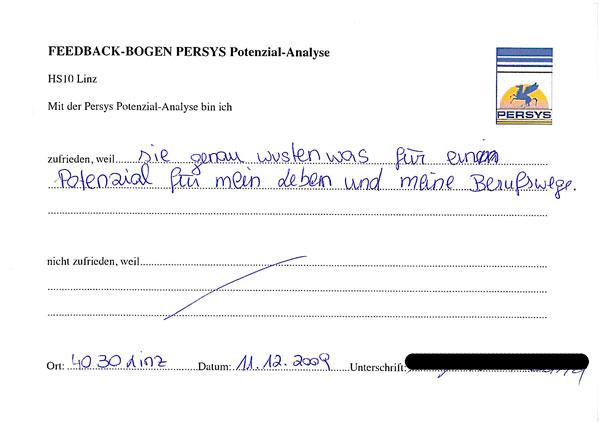 FEEDBACK-BOGEN PERSYS Potenzial-Analyse
HS10 Linz
Mit der Persys Potenzial-Analyse bin ich
PERSYS
zufrieden, weil sie genau wusten was für einen
Potenzial für mein Leben und meine Berufswege.
nicht zufrieden, weil
Ort: 4030 Linz Datum: 11.12.2009 Unterschrift: